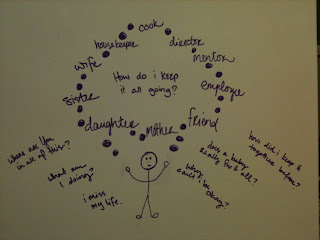 cook
housekeeper
director
wife
mentor
How do i keep
it all going?
sister
employee
daughter
mother
friend
where are you
in all of this?
what am
I doing?
i miss
my life.
why
i be
does a baby
really it all?
how did i keep it
together before?